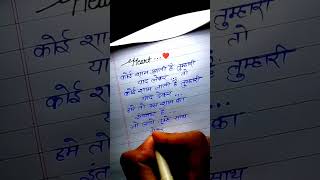 Heart ...❤️
कोई शाम आती है तुम्हारी
याद लेकर ... तो
कोई शाम जाती है तुम्हारी
याद देकर ...
हमे तो उस शाम का
इंतजार है ..
जो आये तुम्हे साथ